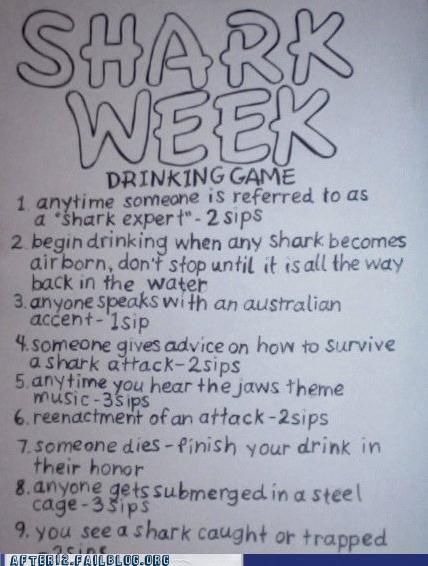 SHARK
WEEK
DRINKING GAME
1. anytime someone is referred to as
a "shark expert" - 2 sips
2. begin drinking when any shark becomes
airborn, don't stop until it is all the way
back in the water
3. anyone speaks with an australian
accent - 1sip
4. someone gives advice on how to survive
a shark attack - 2sips
5. anytime you hear the jaws theme
music - 3sips
6. reenactment of an attack - 2sips
7. someone dies - finish your drink in
their honor
8. anyone gets submerged in a steel
cage - 3sips
9. you see a shark caught or trapped
- 2sips
AFTER12.FAILBLOG.ORG